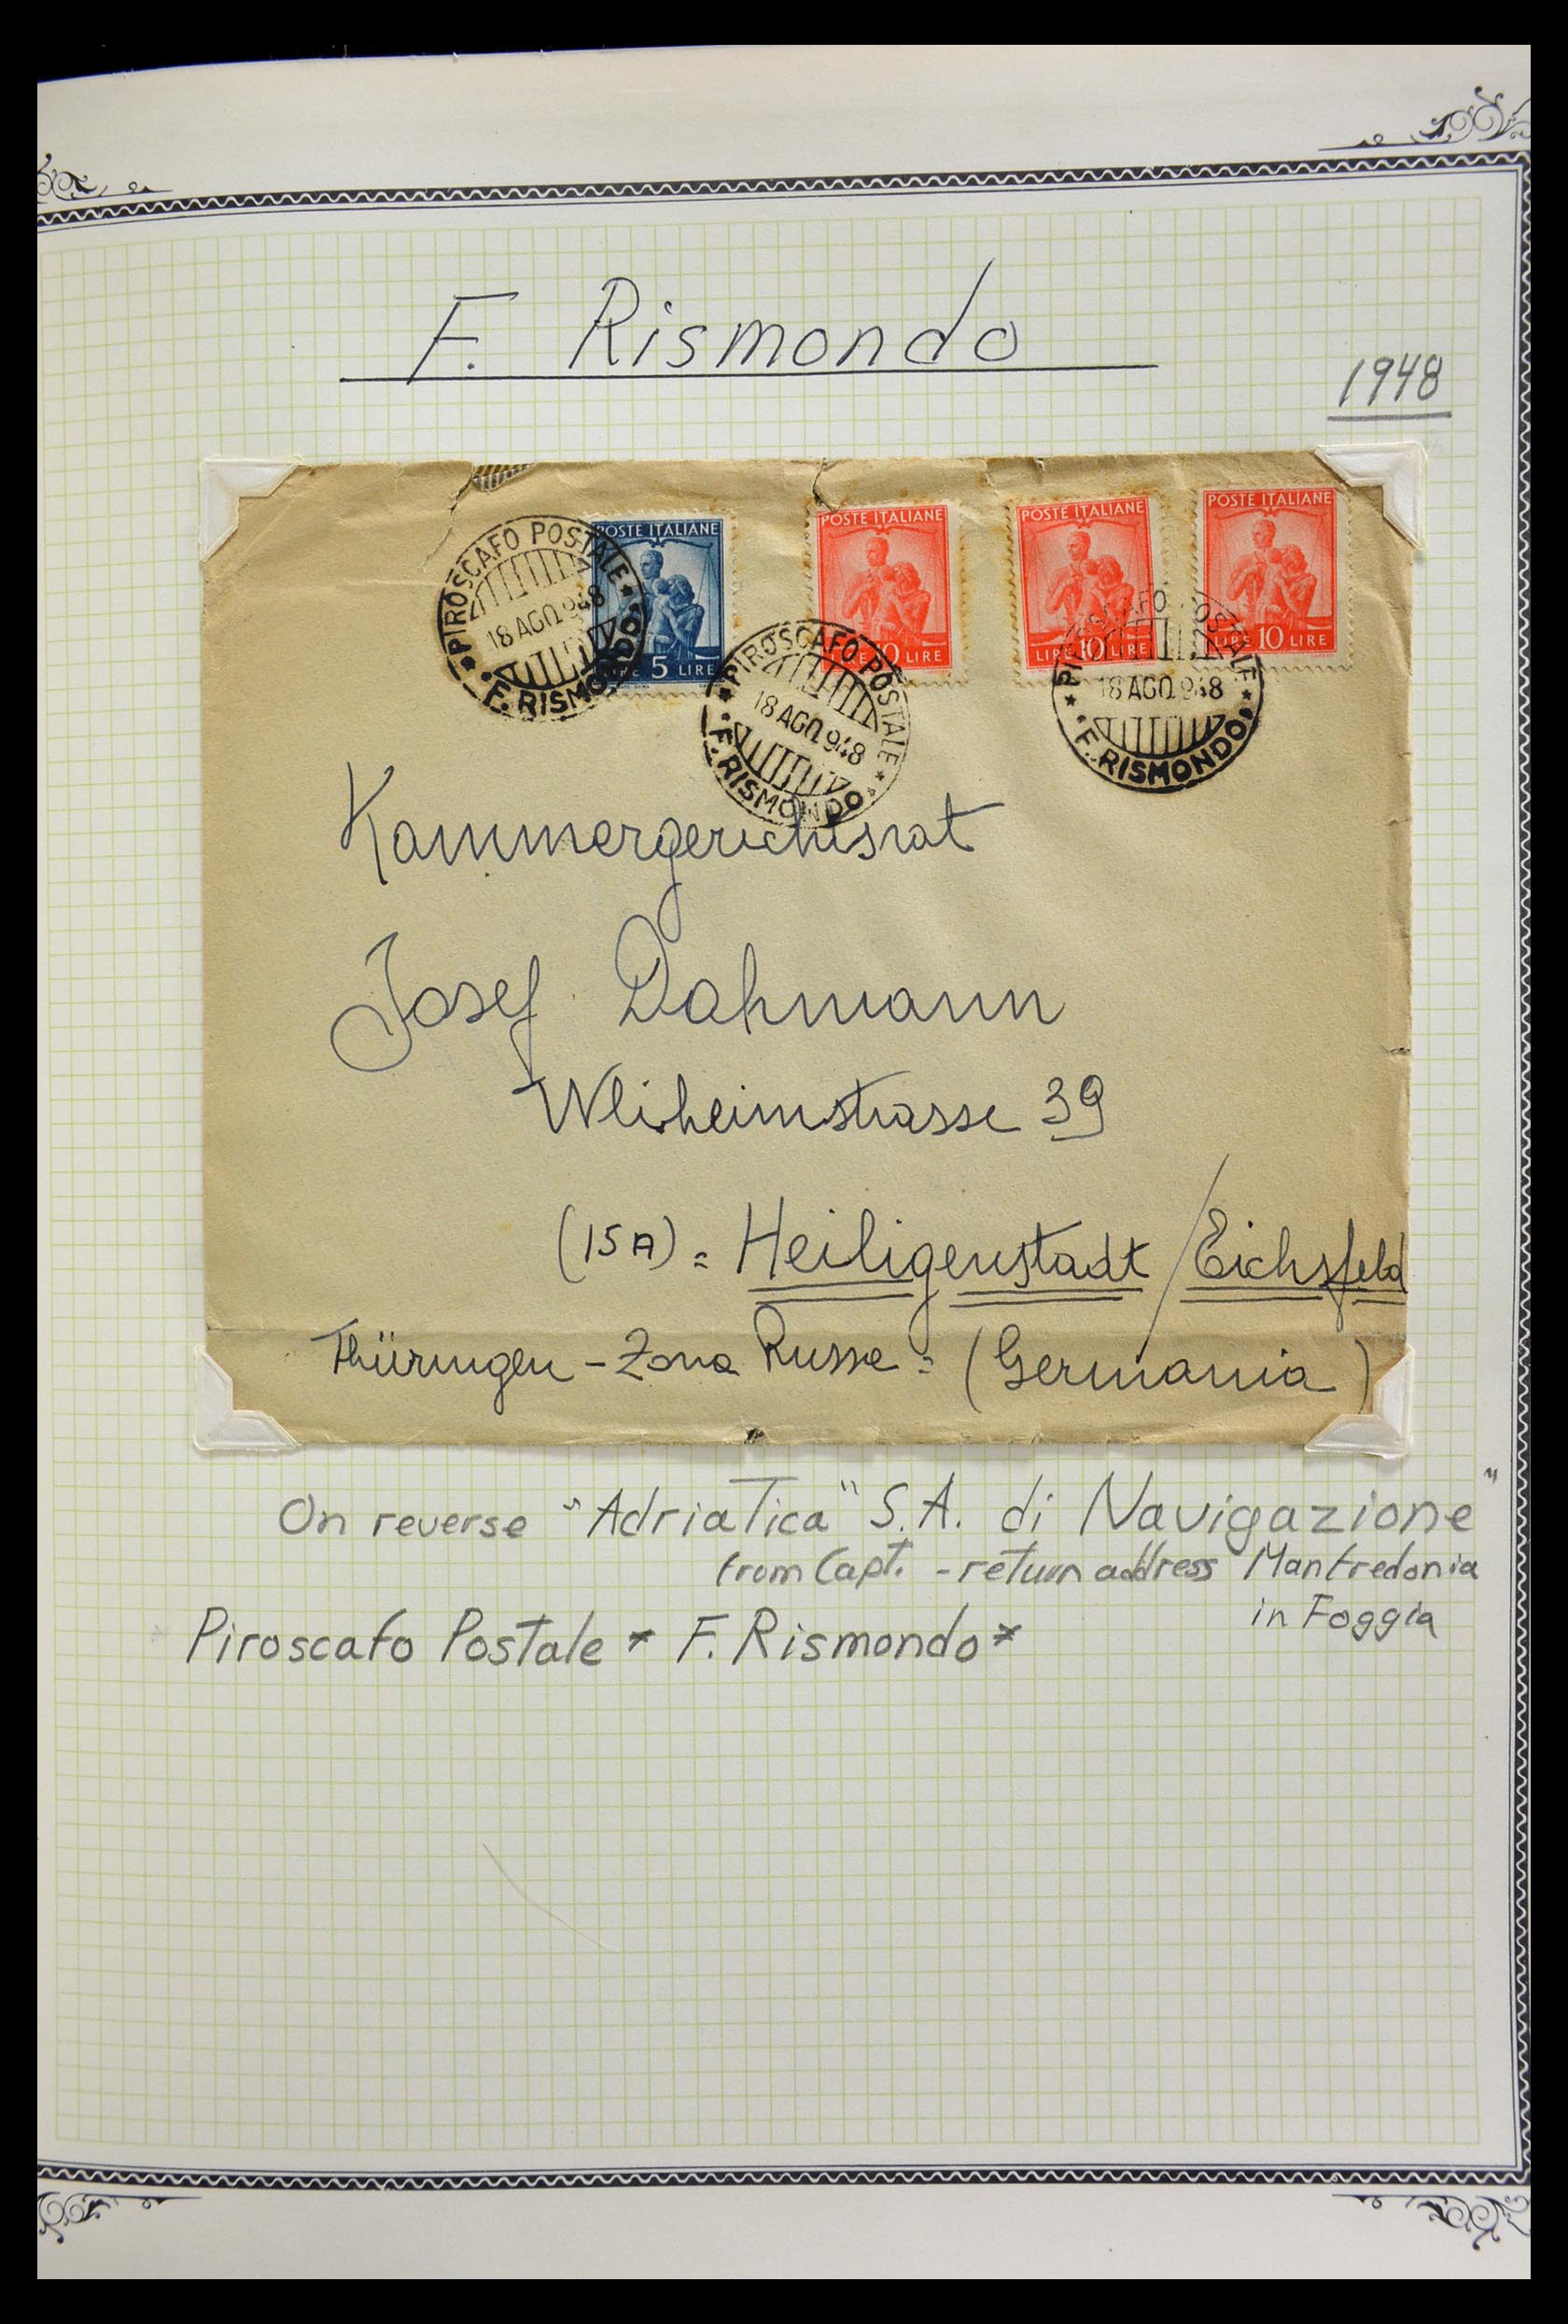 F. Rismondo
1948
POSTE ITALIANE
LIRE 5 LIRE
POSTE ITALIANE
10 LIRE
POSTE ITALIANE
LIRE 10 LIRE
POSTE ITALIANE
LIRE 10 LIRE
* PIROSCAFO POSTALE *
18 AGO 948
F. RISMONDO
* PIROSCAFO POSTALE *
18 AGO 948
F. RISMONDO
* PIROSCAFO POSTALE *
18 AGO 948
F. RISMONDO
Kammergerichtsrat
Josef Dahmann
Wliheimstrasse 39
(15A) = Heiligenstadt / Eichsfeld
Thüringen - Zona Russa = (Germania)
On reverse "Adriatica" S.A. di Navigazione"
from Capt. - return address Manfredonia
in Foggia
Piroscafo Postale * F. Rismondo *